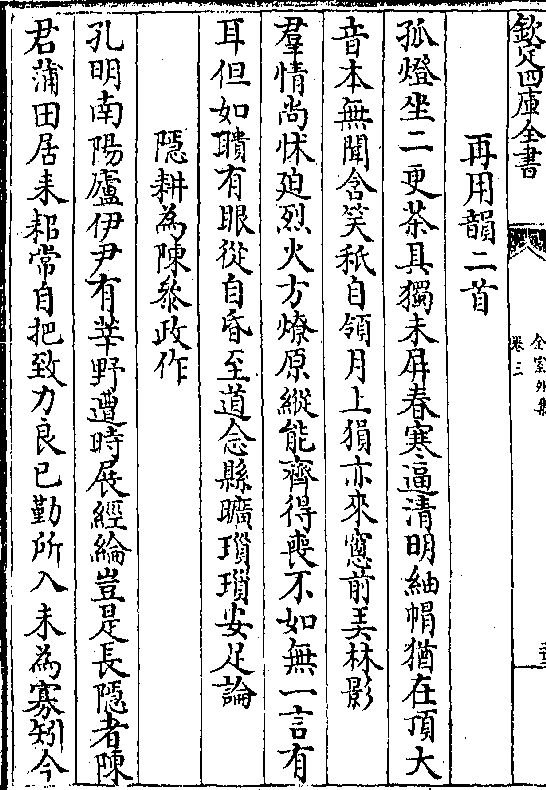 欽定四庫全書
全室外集
卷三
再用韻二首
孤燈坐二更茶具獨未屏春寒逼清明紬帽猶在頂大
音本無聞含笑秖自領月上猿亦來窓前弄林影
羣情尚怵廹烈火方燎原縱能齊得喪不如無一言有
耳但如聵有眼從自昏至道念縣曠瑣瑣安足論
隱耕為陳叅政作
孔明南陽廬伊尹有莘野遭時展經綸豈是長隱者陳
君蒲田居耒耜常自把致力良已勤所入未為寡矧今